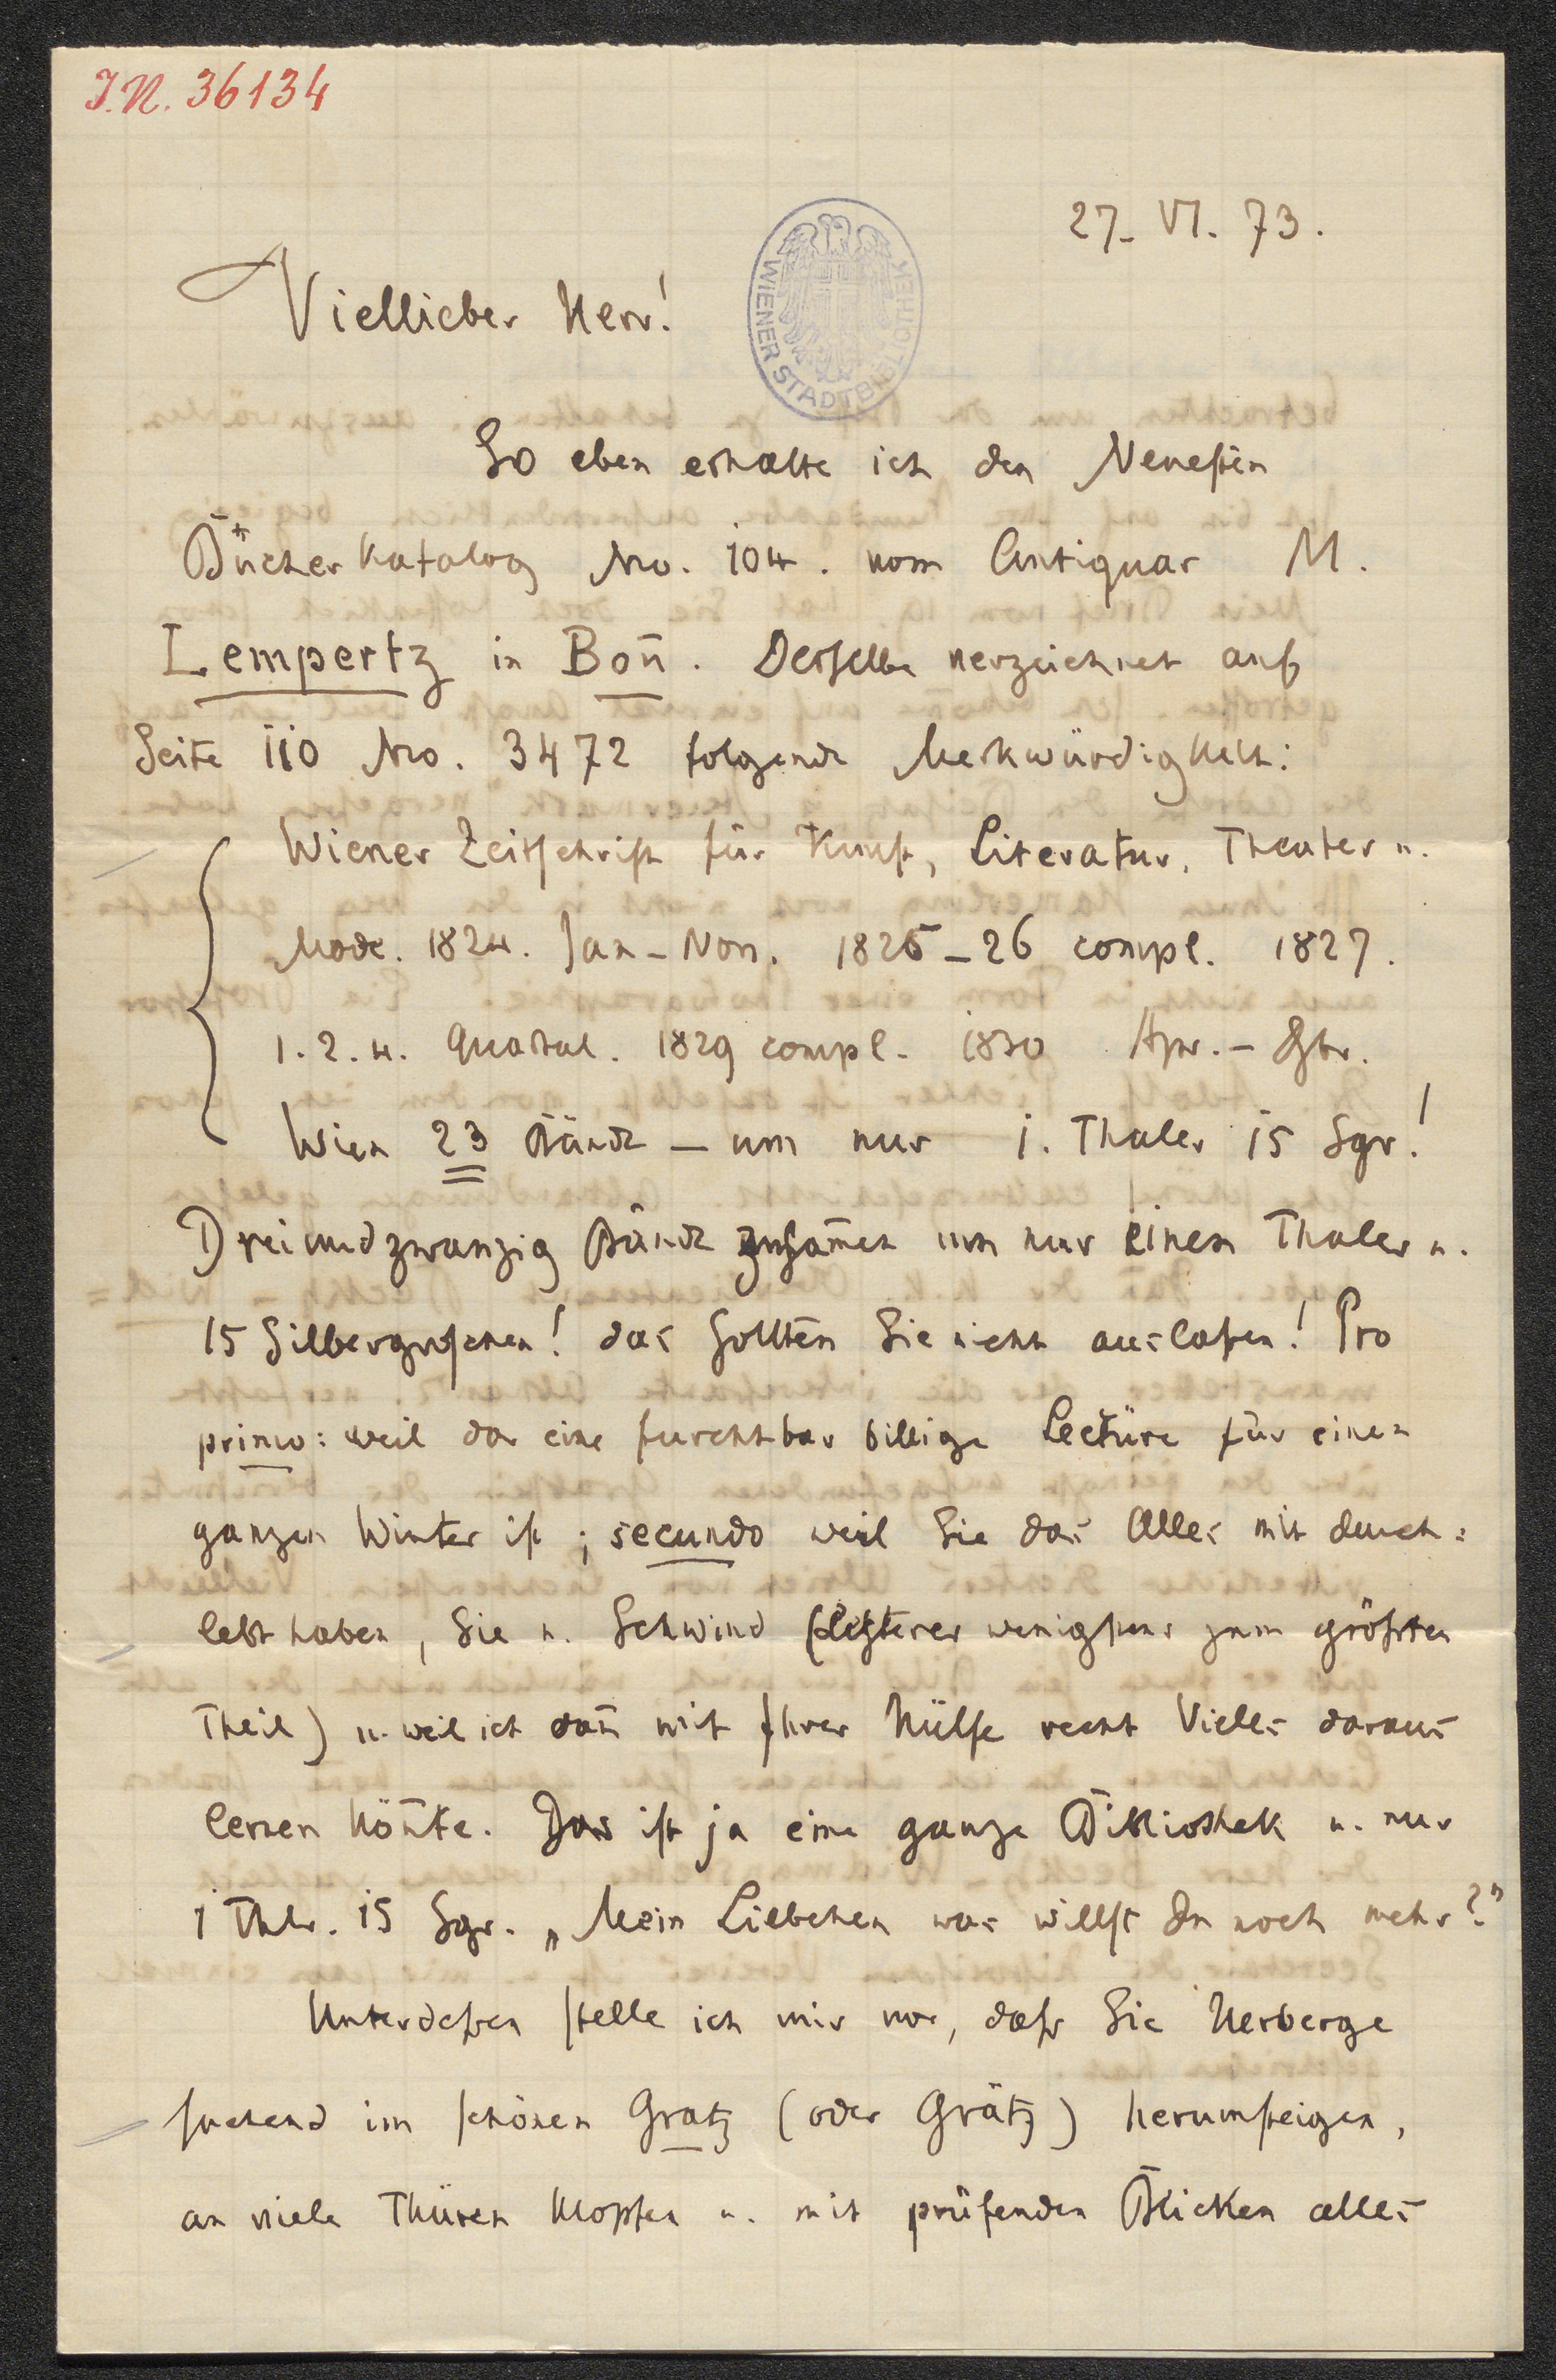 I.N. 36134
27. VI. 73.
WIENER STADTBIBLIOTHEK
Viellieber Herr!
So eben erhalte ich den Neuesten
Bücherkatalog Nro. 104. vom Antiquar M.
Lempertz in Bon̄. Derselbe verzeichnet auf
Seite 110 Nro. 3472 folgende Merkwürdigkeit:
Wiener Zeitschrift für Kunst, Literatur, Theater u.
Mode. 1824. Jan–Nov. 1825–26 compl. 1827.
1. 2. 4. Quartal. 1829 compl. 1830 Apr. – Sbr.
Wien 23 Bände – um nur 1. Thaler 15 Sgr!
Dreiundzwanzig Bände zusam̄en um nur einen Thaler u.
15 Silbergroschen! das sollten Sie nicht auslassen! Pro
primo: weil das eine furchtbar billige Lectüre für einen
ganzen Winter ist; secundo weil Sie das Alles mit durch=
lebt haben, Sie u. Schwind (Letzterer wenigstens zum größten
Theil) u. weil ich dan̄ mit Ihrer Hülfe recht Vieles daraus
lernen kön̄te. Das ist ja eine ganze Bibliothek u. nur
1 Thlr. 15 Sgr. „Mein Liebchen was willst du noch mehr?"
Unterdessen stelle ich mir vor, dass Sie Herberge
suchend im schönen Gratz (oder Grätz) herumsteigen,
an viele Thüren klopfen u. mit prüfenden Blicken alles